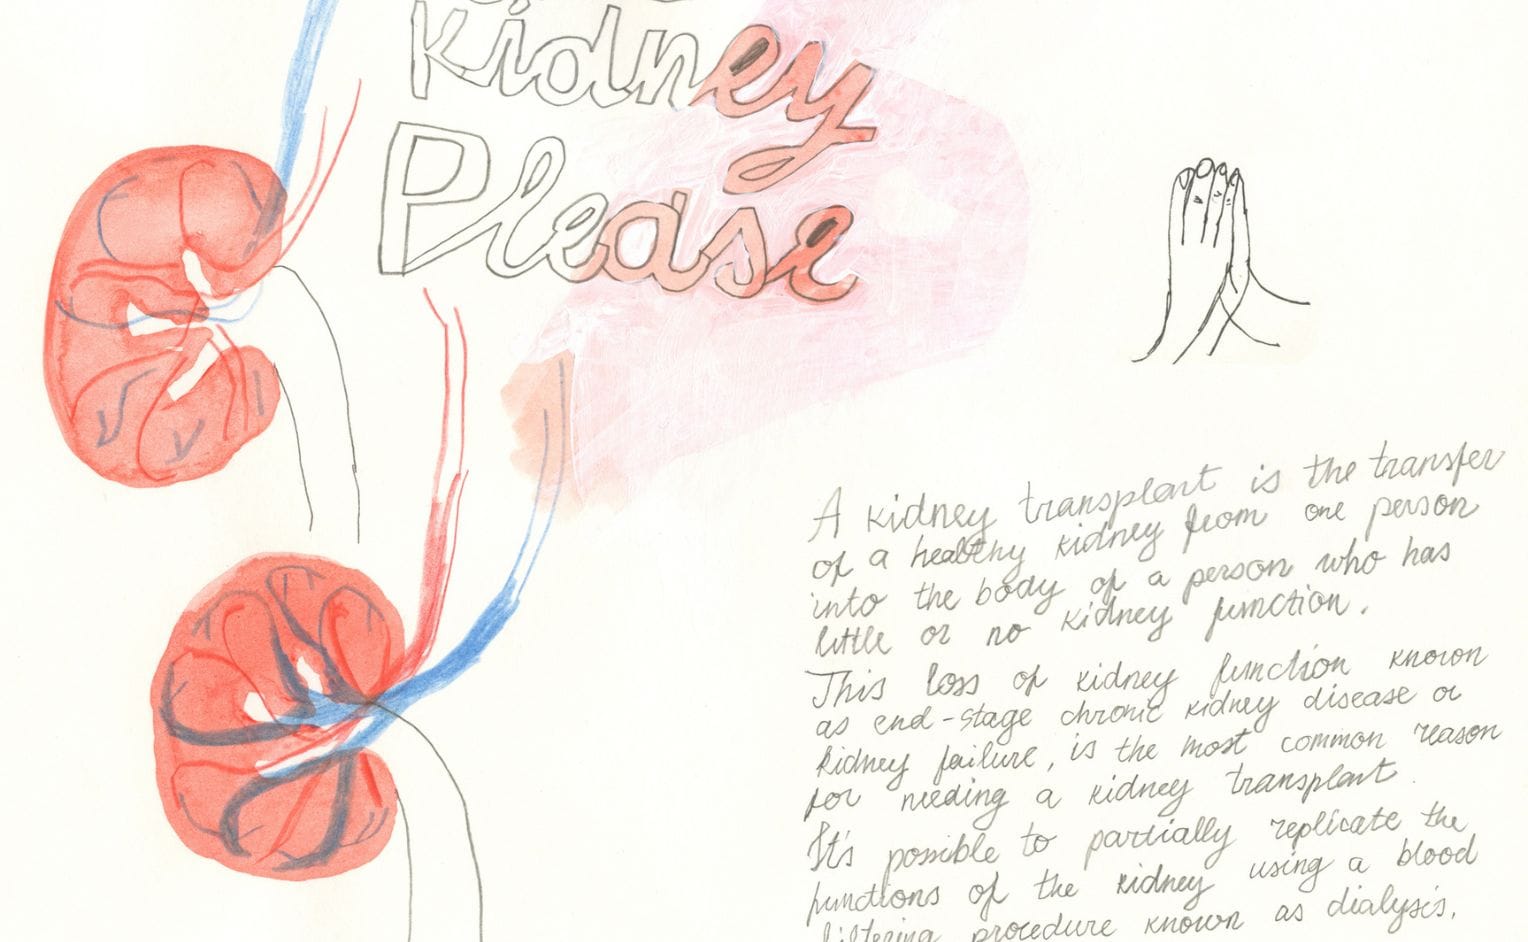 Kidney
Please
A kidney transplant is the transfer
of a healthy kidney from one person
into the body of a person who has
little or no kidney function.
This loss of kidney function known
as end-stage chronic kidney disease or
kidney failure, is the most common reason
for needing a kidney transplant.
It's possible to partially replicate the
functions of the kidney using a blood
filtering procedure known as dialysis.